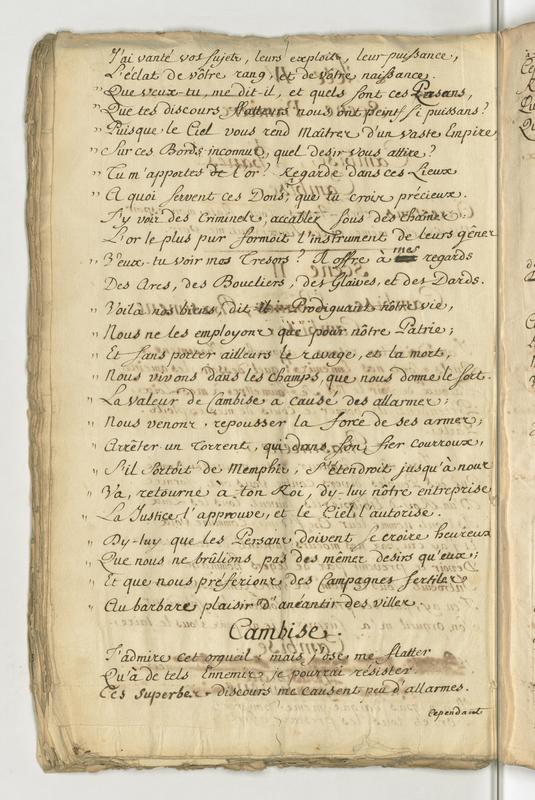 J'ai vanté vos sujets, leurs exploits, leur puissance,
L'éclat de vôtre rang, et de vôtre naissance.
" Que veux-tu, me dit-il, et quels sont ces Persans,
" Que tes discours flatteurs nous ont peints si puissans?
" Puisque le Ciel vous rend Maîtres d'un vaste Empire
" Sur ces Bords inconnus, quel desir vous attire?
" Tu m'apportes de l'or? Regarde dans ces Lieux
" A quoi servent ces Dons, que tu crois précieux.
J'y vois des Criminels, accablés sous des chaînes;
L'or le plus pur formoit l'instrument de leurs gênes
" Veux-tu voir mes Tresors? Il offre à mes regards
Des Arcs, des Boucliers, des Glaives, et des Dards.
" Voilà nos biens, dit-il: Prodiguant nôtre vie,
" Nous ne les employons que pour nôtre Patrie;
" Et sans porter ailleurs le ravage, et la mort,
" Nous vivons dans les champs, que nous donne le sort.
" La valeur de Cambise a causé des allarmes;
" Nous venons, repousser la force de ses armes;
" Arrêter un Torrent, qui dans son fier courroux,
" S'il sortoit de Memphis, s'étendroit jusqu'à nous
" Va, retourne à ton Roi, dy-luy nôtre entreprise
" La Justice l'approuve, et le Ciel l'autorise.
" Dy-luy que les Persans doivent se croire heureux
" Que nous ne brûlions pas des mêmes desirs qu'eux;
" Et que nous préférions des Campagnes fertiles
" Au barbare plaisir D'anéantir des villes.
Cambise.
J'admire cet orgueil; mais j'ose me flatter
Qu'à de tels Ennemis je pourrai résister.
Ces superbes discours me causent peu d'allarmes.
Cependant